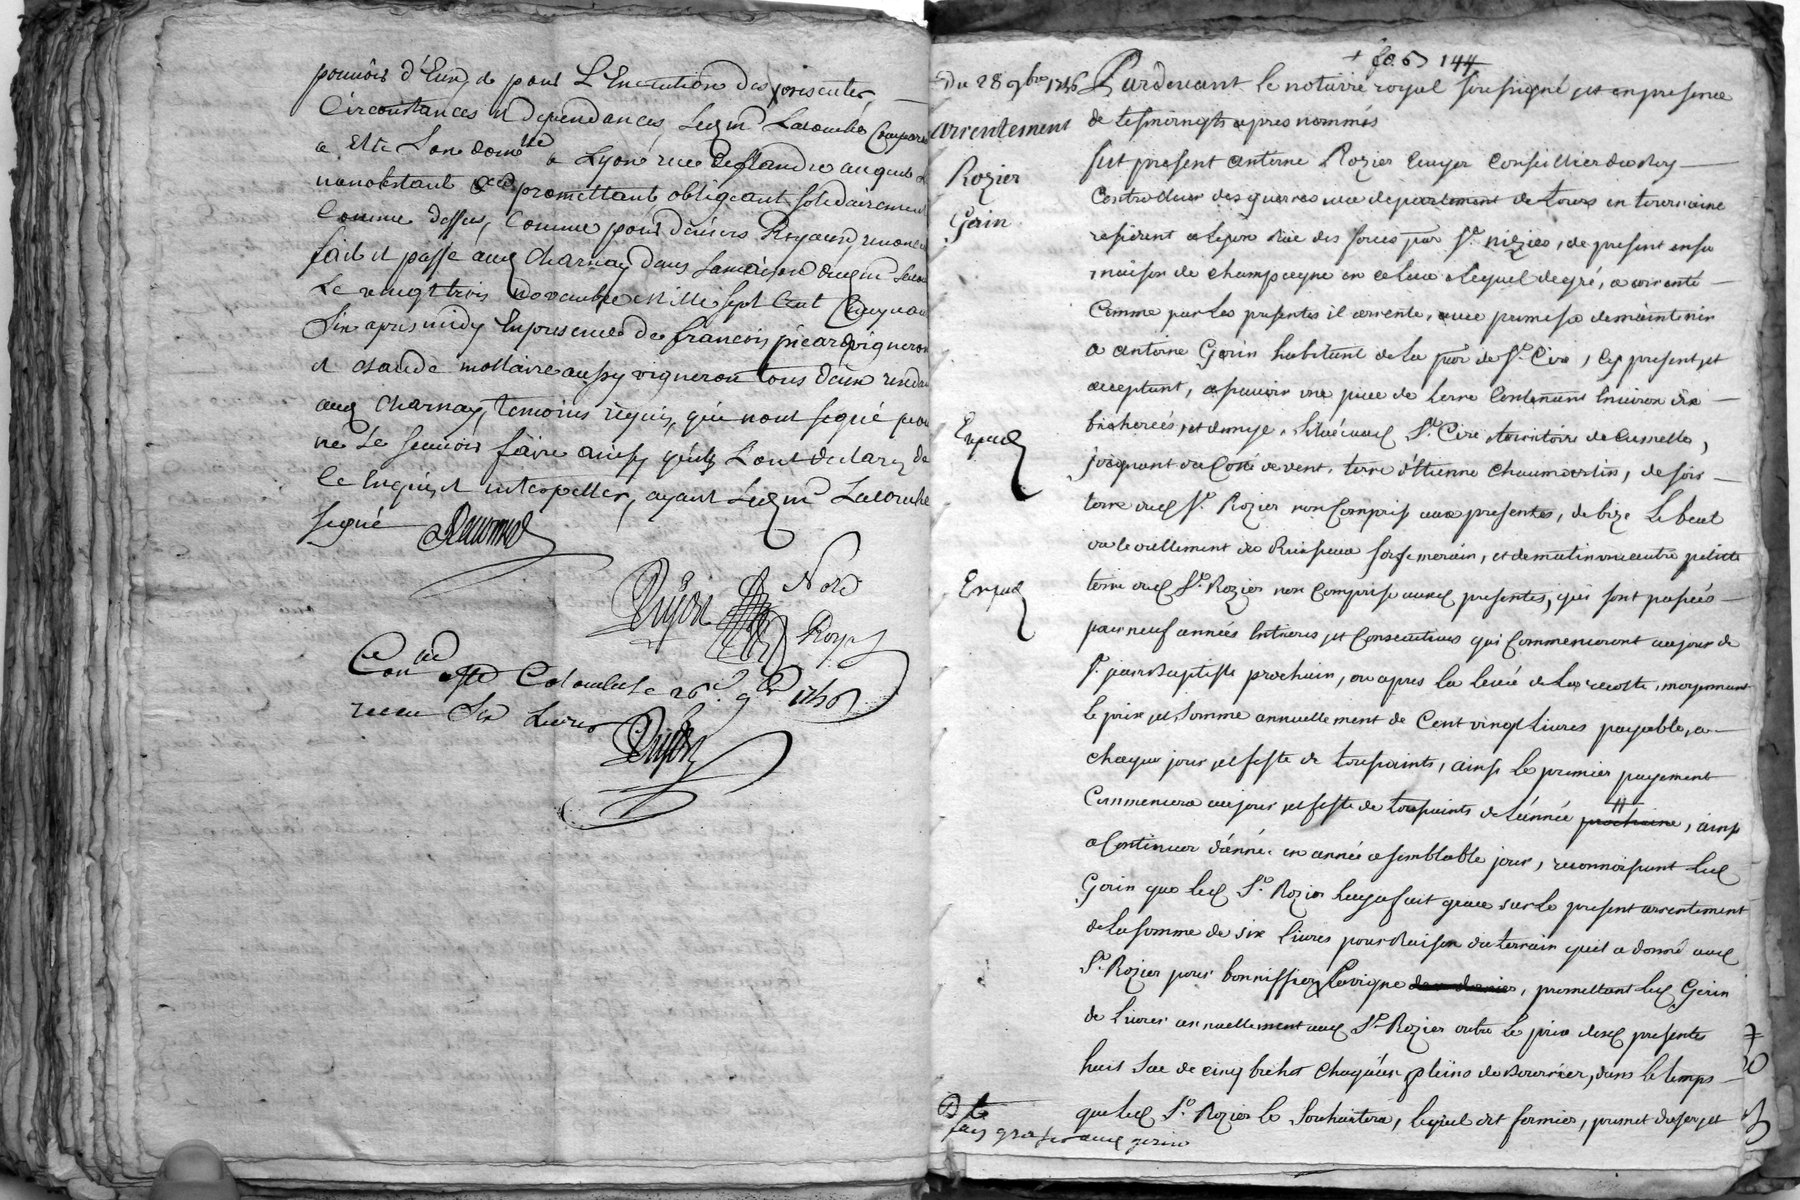 pouvoir d'Eux, & pour L'Execution des presentes
Circonstances et dependances, Led. Lacombe Comparant
a Elu Son domlle a Lyon rüe de flandre auquel
nonobstant &ca promettant obligeant solidairement
Comme dessus, Comme pour deniers Royaux renoncant
fait et passé aud. Charnay dans la maison dud.
Le vingt trois novembre mille sept Cent Cinquante
Six apres midy En presence de francois picard vigneron
et claude mollaire aussy vigneron tous deux
aud. Charnay, temoins requis, qui n'ont signé pour
ne Le scavoir faire ainsy qu'ils L'ont declaré de
Ce Enquis et interpellés, ayant Led. Lacombe
signé
Nord
Roy
Conlle Colombet le 26e 9bre 1756
receu Six Livres
+ fo 63 144
Du 28 9bre 1756
Pardevant le notaire royal soussigné et en presence
de tesmoingts apres nommés
arrentement
Rozier
Gerin
fut present antoine Rozier Ecuyer Conseillier du Roy
Controlleur des guerres au departement de tours en tourraine
resident a Lyon rüe des forces par. St. nizier, de present en sa
maison de champagne en ce lieu lequel de gré, a arrenté
Comme par Les presentes il arrente, avec promesse de maintenir
a antoine Gerin habitant de la par. de St. Cire, Cy present et
acceptant, a scavoir une piece de terre Contenant Environ dix
bicherées, et demye, Située aud. St. Cire territoire de Cumelle,
Expd.
joignant du Coté de vent, terre d'Etienne Chaumartin, de soir
terre dud. Sr. Rozier non Compris aux presentes, de bize Le beal
ou le vallement du Ruisseau, et de matin une autre petitte
Expd.
terre dud. Sr. Rozier non Comprise auxd. presentes, qui sont passées
pour neuf années Entieres et Consecutives qui Commenceront au jour de
St. jean Baptiste prochain, ou apres la levée de La recolte, moyennant
le prix et Somme annuellement de Cent vingt Livres payable, a
chaque jour et feste de toussaints, ainsi le premier payement
Commencera au jour et feste de toussaints de L'année prochaine, ainsi
a Continuer d'année en année a semblable jour, reconnoissant led.
Gerin que led. Sr. Rozier luy a fait grace sur le present arrentement
de la somme de six Livres pour Raison du terrain qu'il a donné aud.
Sr. Rozier pour bonniffier La vigne, promettant led. Gerin
de Livrer annuellement aud. Sr. Rozier outre le prix desd. presentes
huit Sac de cinq bichet chaqu'un pleins de Bourrier, dans le temps
que led. Sr. Rozier le Souhaitera, lequel dit fermier, promet d'user et